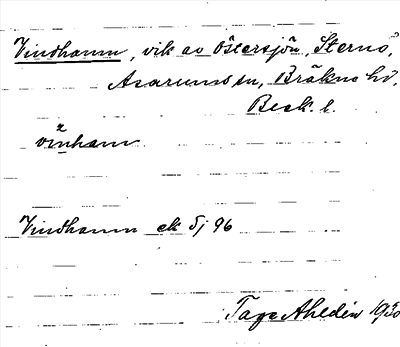 Vindhamn, vik av Östersjön, Sternö,
Asarums sn, Bräkne hd,
Blek. l.
vinham
Vindhamn ek 5j 96
Tage Ahldén 1930